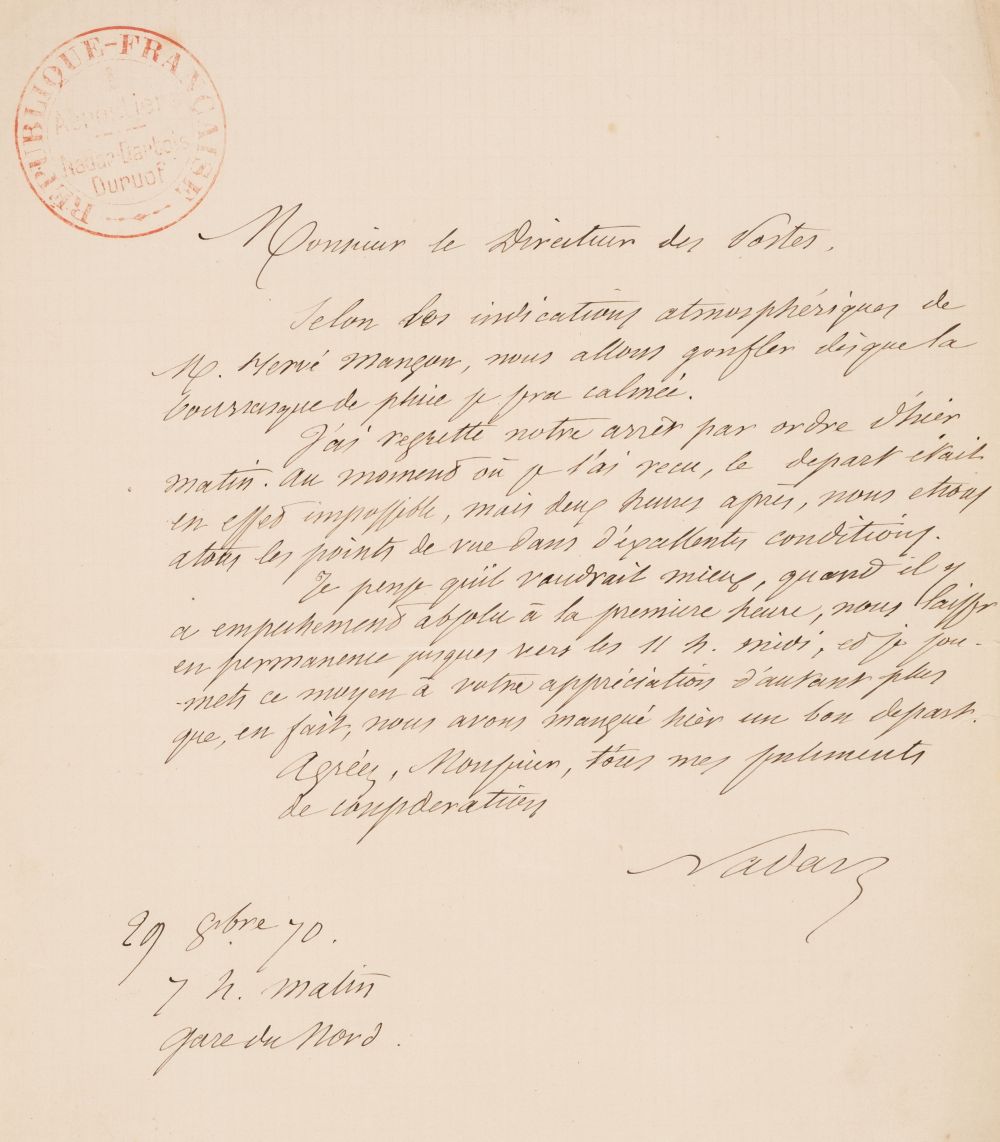 RÉPUBLIQUE-FRANÇAISE
Aérostiers
Nadar-Dartois
Duruof
Monsieur le Directeur des Postes.
Selon les indications atmosphériques de
M. Hervé Mangon, nous allons gonfler dèsque la
bourrasque de pluie se sera calmée.
J'ai regretté notre arrêt par ordre d'hier
matin. Au moment où je l'ai reçu, le depart était
en effet impossible, mais deux heures après, nous etions
atous les points de vue dans d'excellentes conditions.
Je pense qu'il vaudrait mieux, quand il y
a empechement absolu à la première heure, nous laisser
en permanence jusques vers les 11 h. midi, et je sou-
mets ce moyen à votre appréciation d'autant plus
que, en fait, nous avons manqué hier un bon depart.
Agréez, Monsieur, tous mes sentiments
de consideration
Nadar
29 8bre 70.
7 h. matin
Gare du Nord.